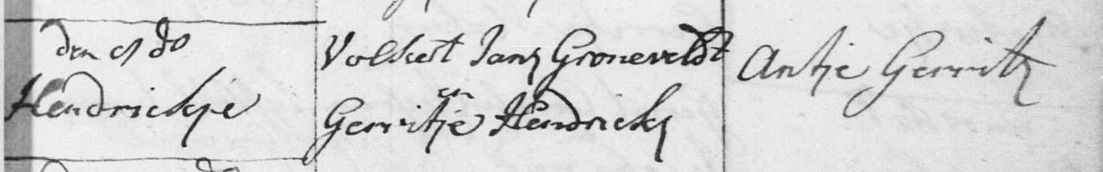 den 9 do
Hendrickje
Volkert Janz Groneveldt
en
Gerritje Hendrickz
Antje Gerritz